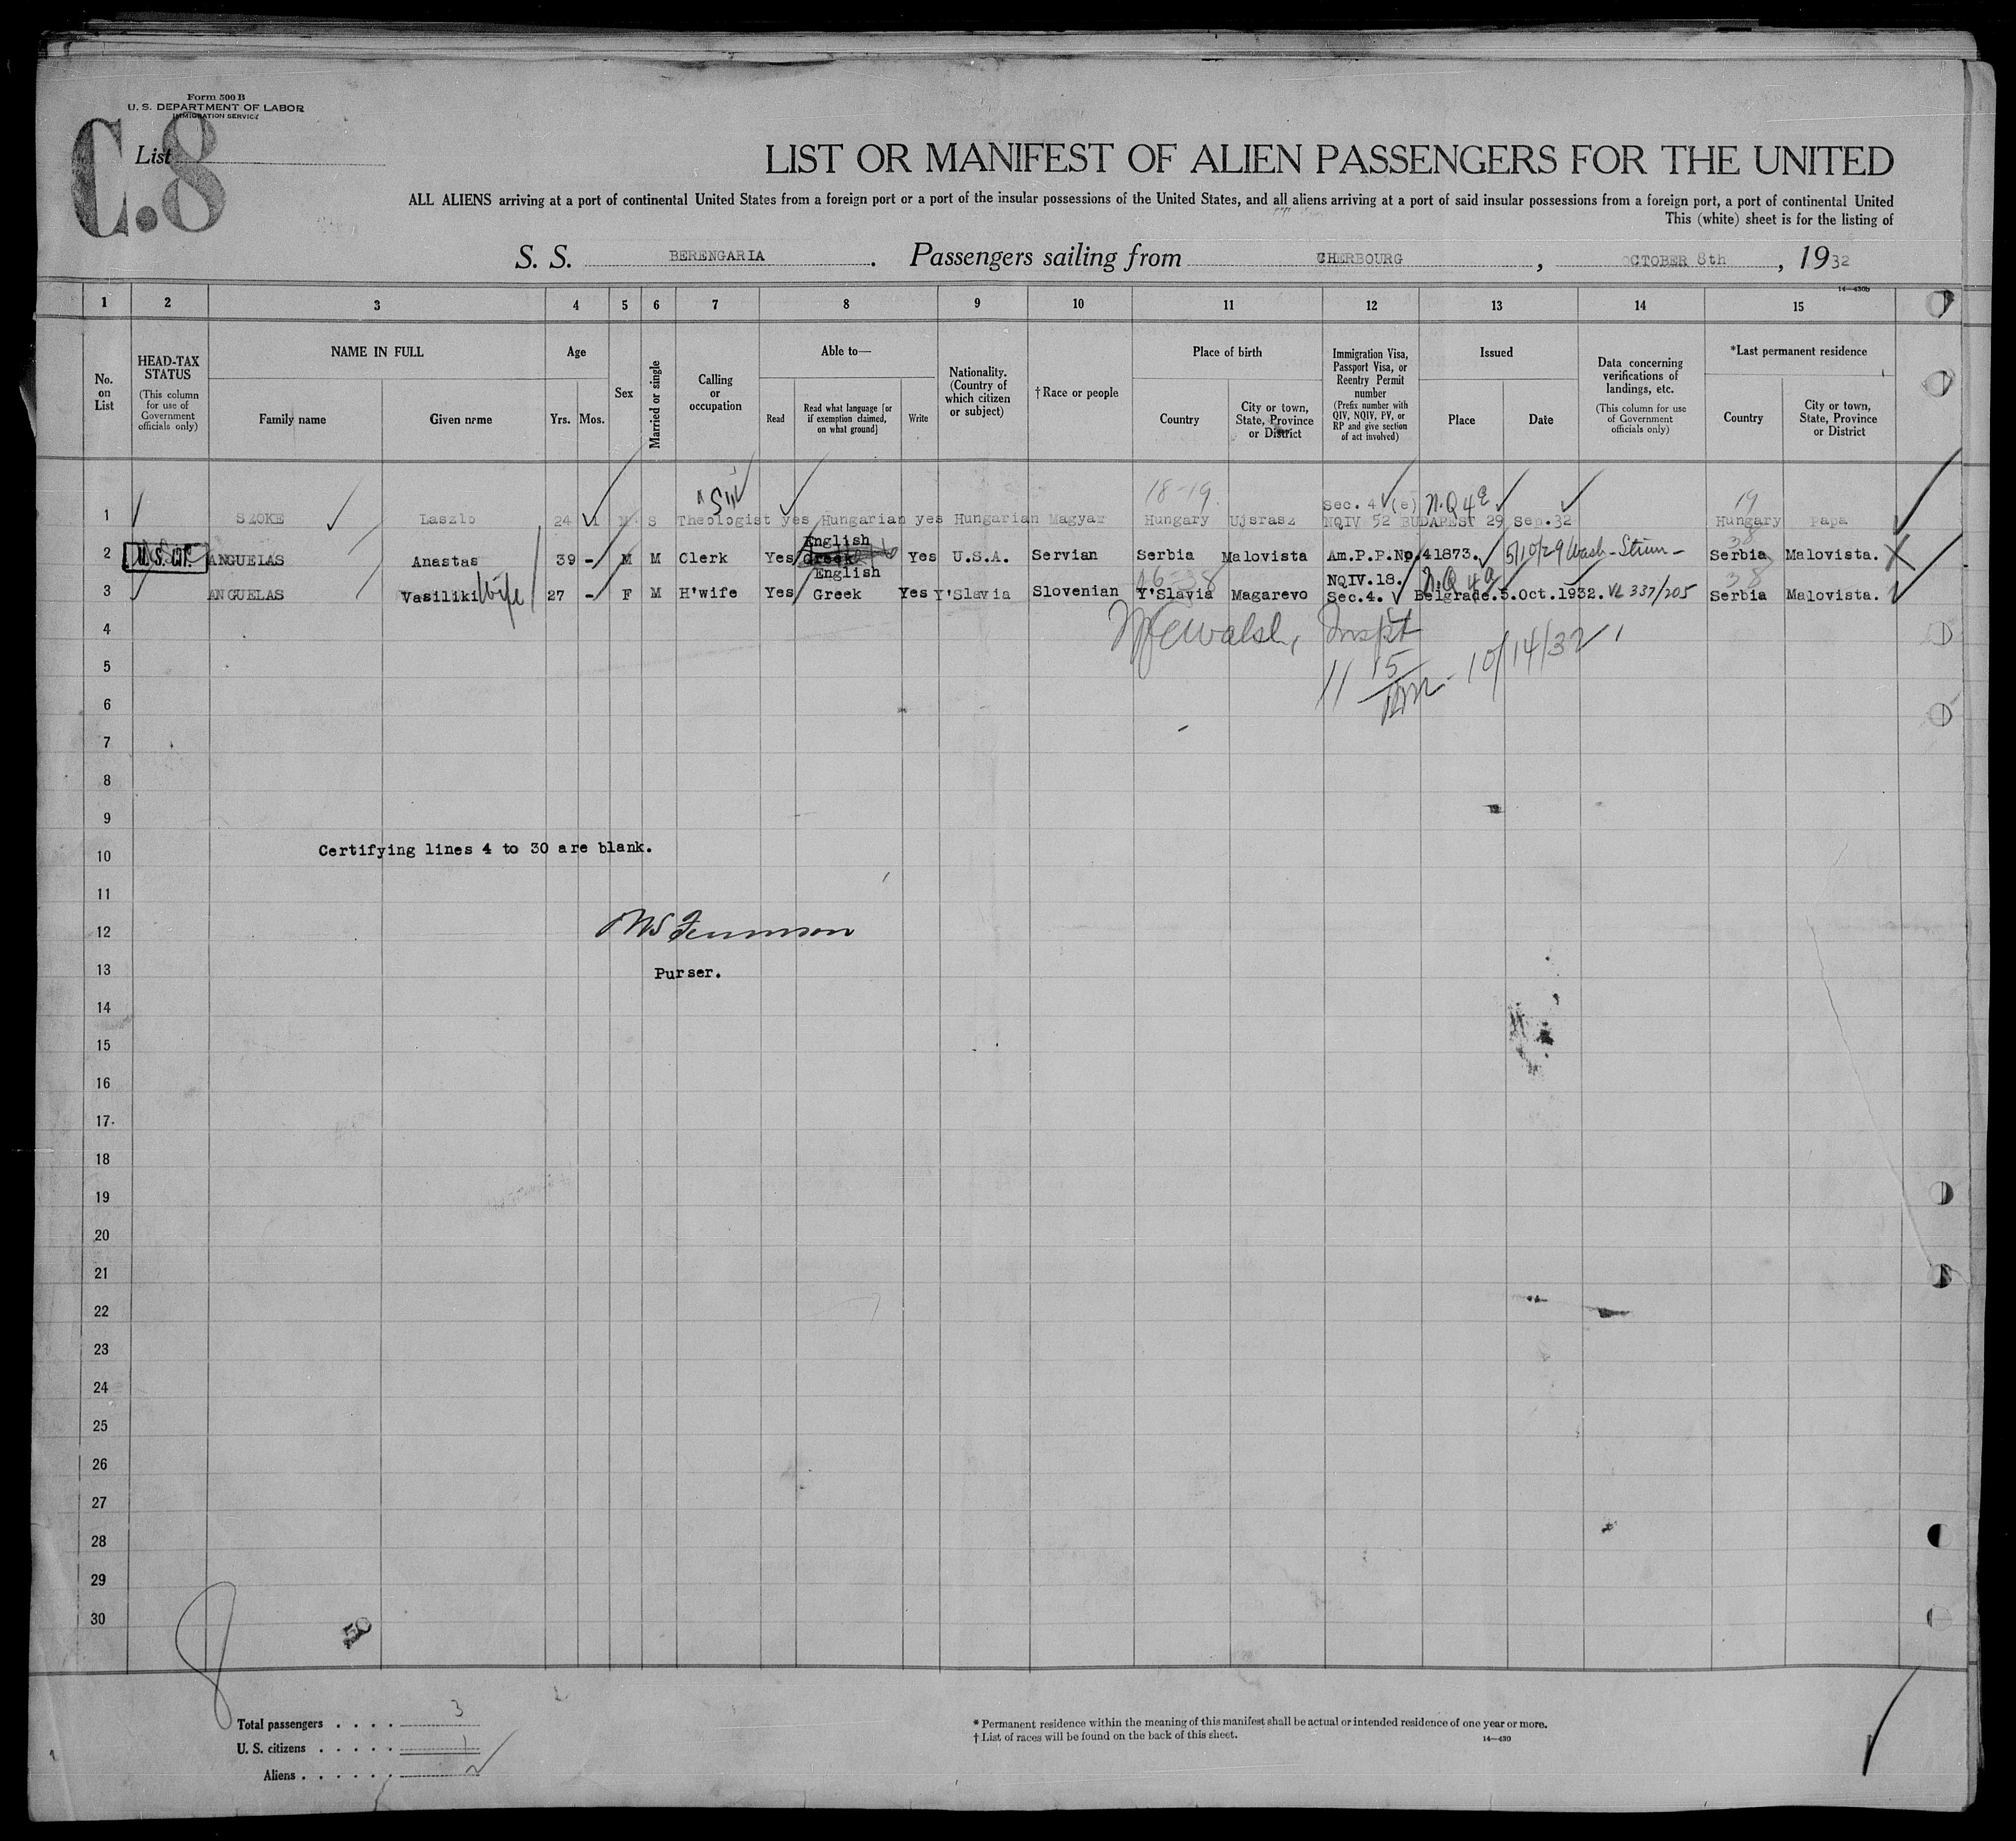 Form 500 B
U. S. DEPARTMENT OF LABOR
IMMIGRATION SERVICE
C.8
List
LIST OR MANIFEST OF ALIEN PASSENGERS FOR THE UNITED
ALL ALIENS arriving at a port of continental United States from a foreign port or a port of the insular possessions of the United States, and all aliens arriving at a port of said insular possessions from a foreign port, a port of continental United
This (white) sheet is for the listing of
S. S. BERENGARIA . Passengers sailing from CHERBOURG , OCTOBER 8th , 1932
14—430b
1 2 3 4 5 6 7 8 9 10 11 12 13 14 15
No. on List
HEAD-TAX STATUS (This column for use of Government officials only)
NAME IN FULL
Family name Given name
Age
Yrs. Mos.
Sex
Married or single
Calling or occupation
Able to—
Read Read what language [or if exemption claimed, on what ground] Write
Nationality. (Country of which citizen or subject)
† Race or people
Place of birth
Country City or town, State, Province or District
Immigration Visa, Passport Visa, or Reentry Permit number (Prefix number with QIV, NQIV, PV, or RP and give section of act involved)
Issued
Place Date
Data concerning verifications of landings, etc. (This column for use of Government officials only)
*Last permanent residence
Country City or town, State, Province or District
18-19. Sec. 4 (e) N.Q 4e 19
1 SZOKE Laszlo 24 1 M S Theologist yes Hungarian yes Hungarian Magyar Hungary Ujsrasz NQIV 52 BUDAPEST 29 Sep.32 Hungary Papa
English 38
2 U.S. CIT. ANGUELAS Anastas 39 - M M Clerk Yes Greek Yes U.S.A. Servian Serbia Malovista Am.P.P.No.41873. 5/10/29 Wash-Stim- Serbia Malovista.
English 06-38 NQIV.18. N.Q 4a 38
3 ANGUELAS Vasiliki Wife 27 - F M H'wife Yes Greek Yes Y'Slavia Slovenian Y'Slavia Magarevo Sec.4. Belgrade. 5.Oct.1932. VL 337/205 Serbia Malovista.
4 Walsh, Inspt
5 11 15 10/14/32
6
7
8
9
10 Certifying lines 4 to 30 are blank.
11
12
13 Purser.
14
15
16
17
18
19
20
21
22
23
24
25
26
27
28
29
30
50
Total passengers . . . . 3
U. S. citizens . . . . . 1
Aliens . . . . . . 2
* Permanent residence within the meaning of this manifest shall be actual or intended residence of one year or more.
† List of races will be found on the back of this sheet.
14—430